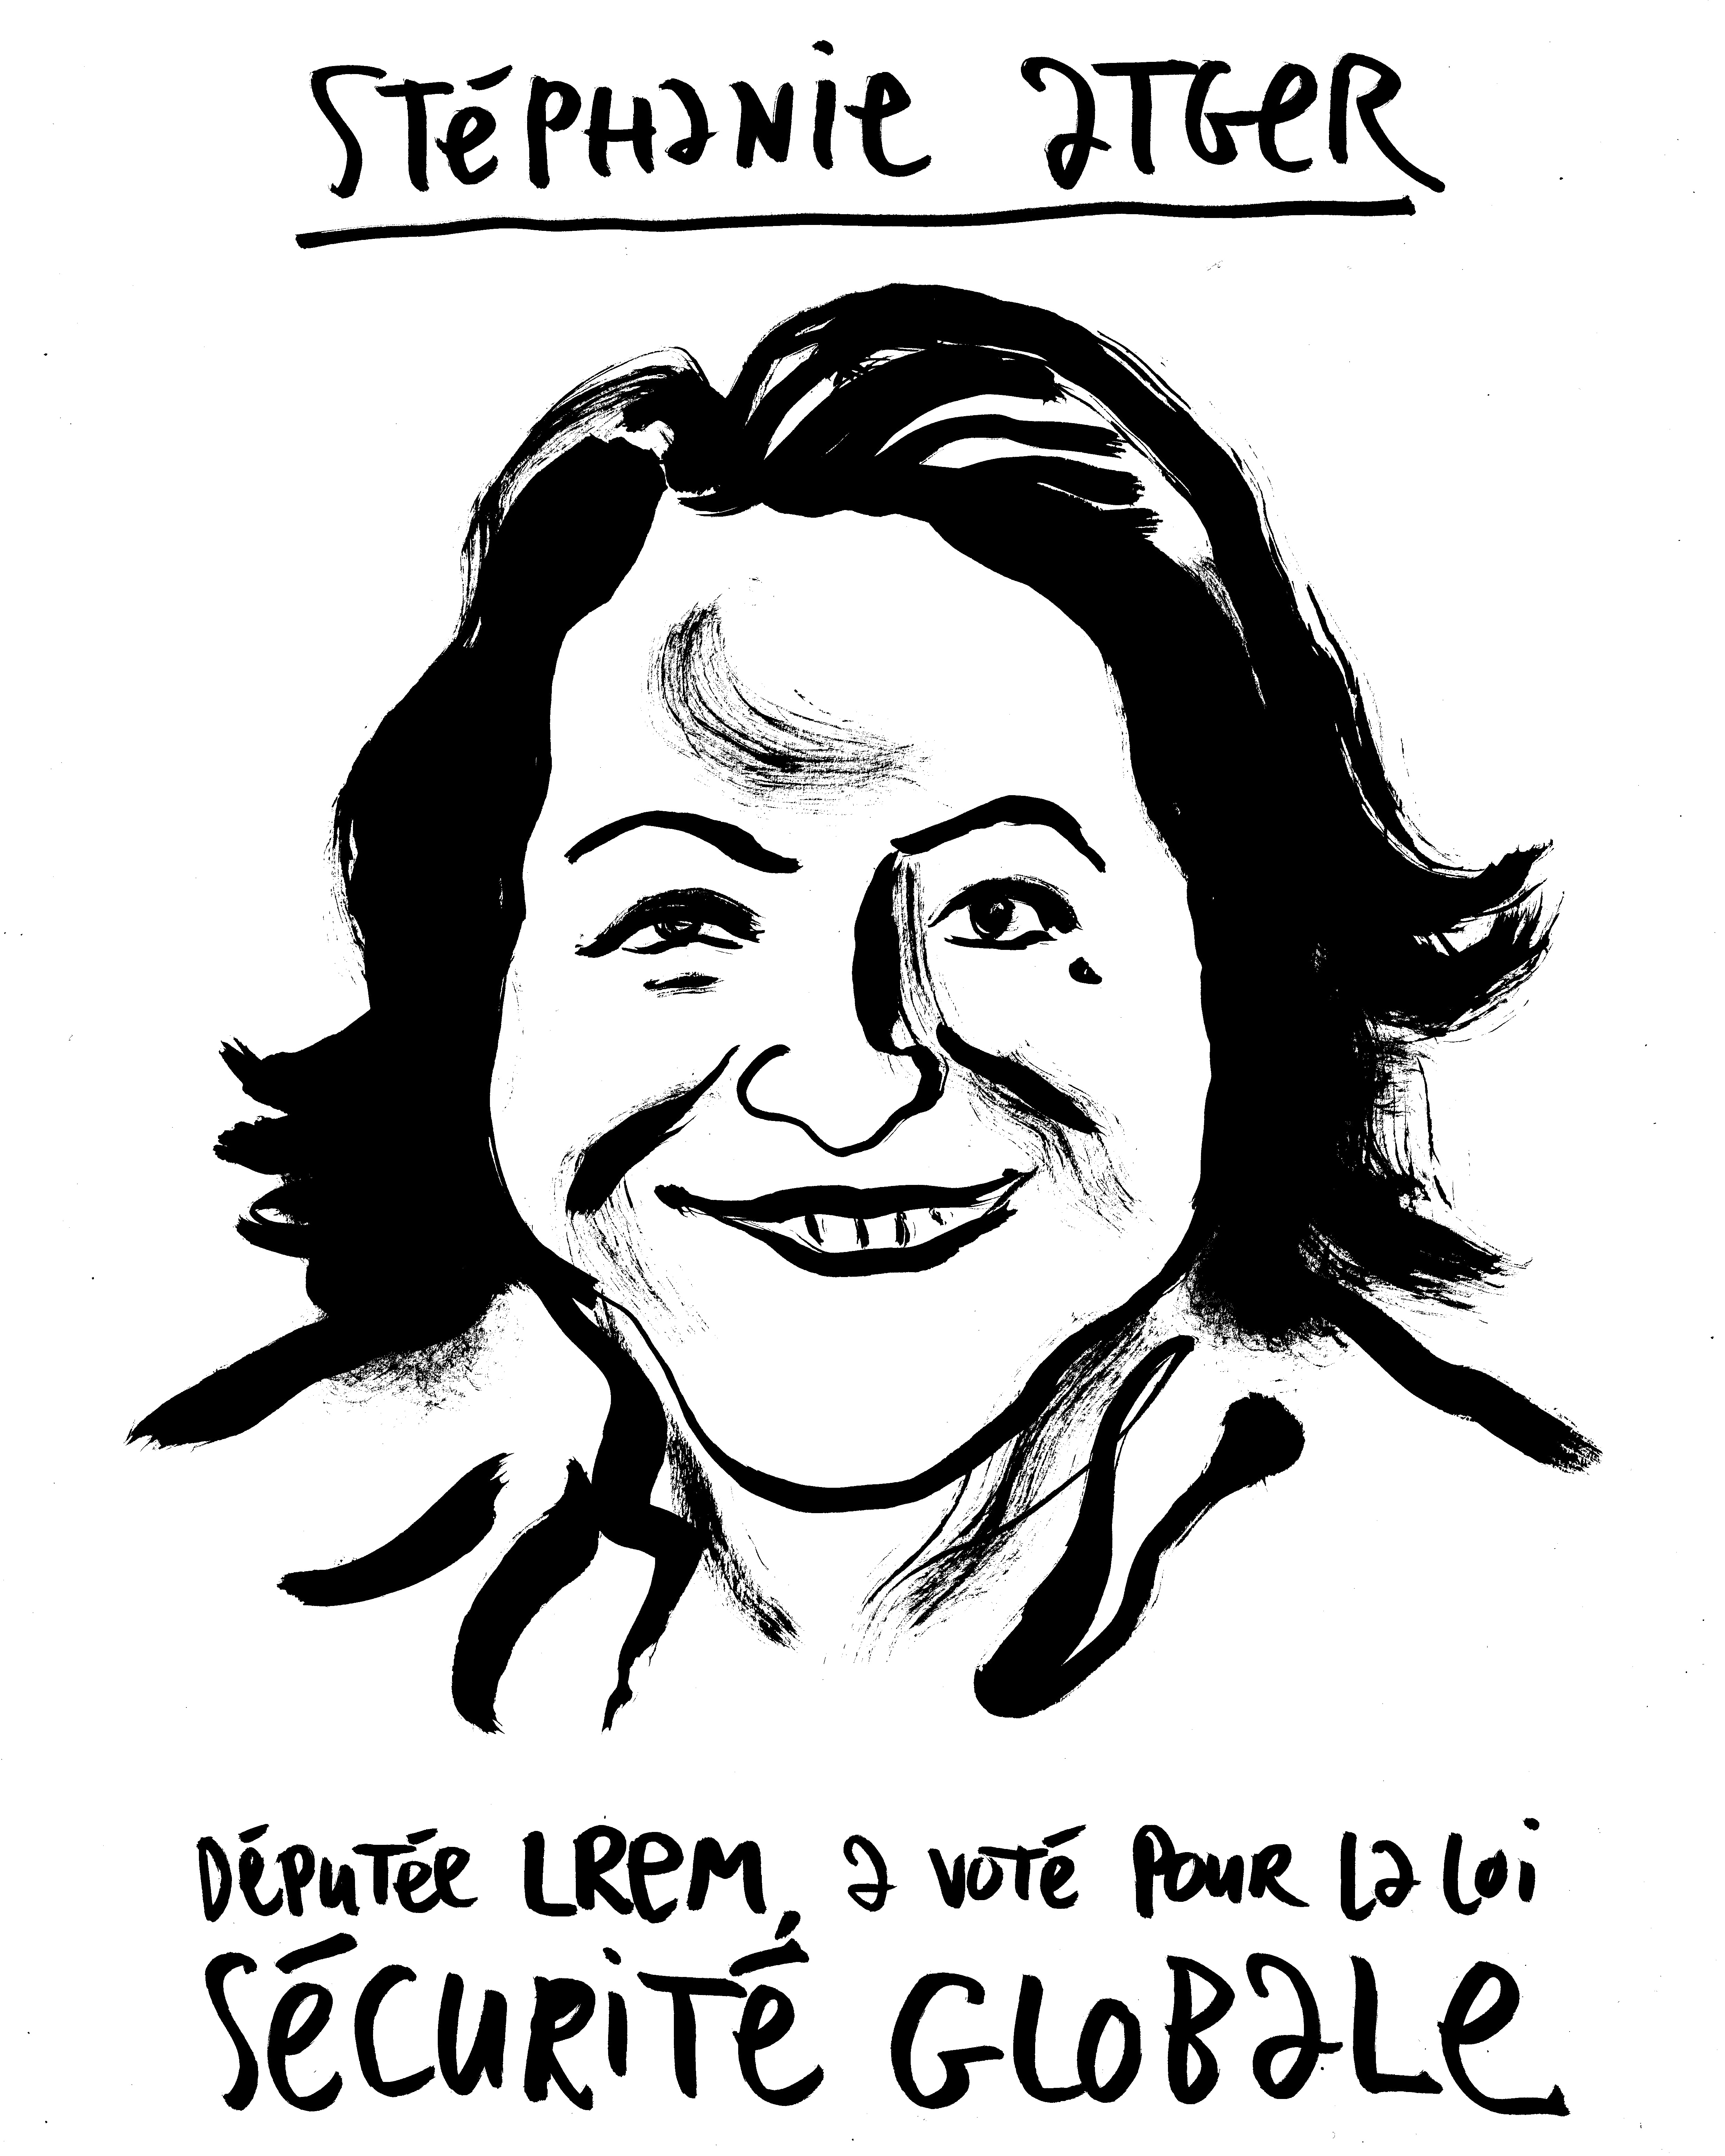 STéPHaNie aTGeR
DéPuTée LReM, a VOTé POUR La Loi
SéCURiTé GLOBaLe